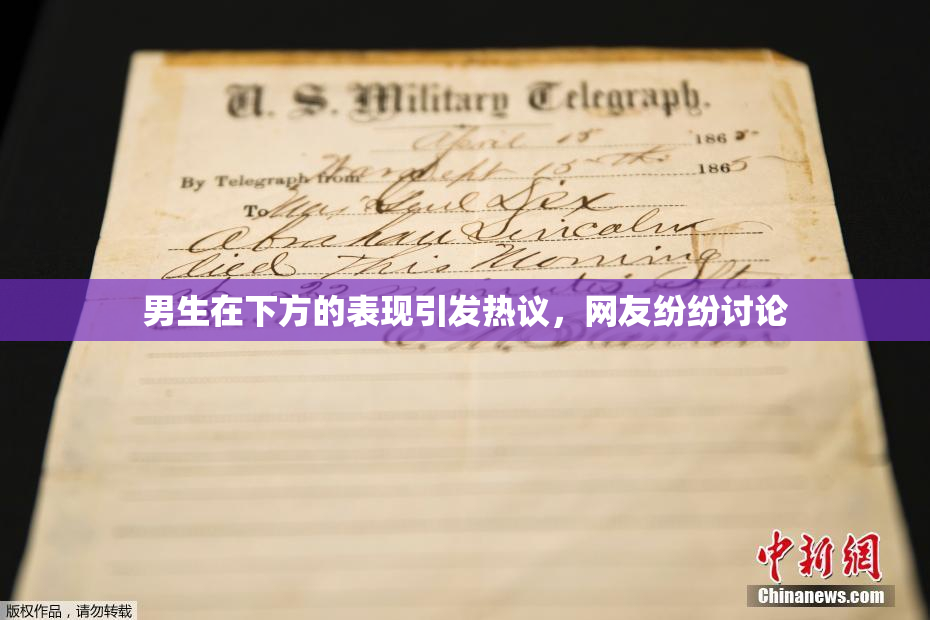 U. S. Military Telegraph.
April 15 1865
By Telegraph from War Dept 15th 1865
To Maj Genl Dix
Abraham Lincoln
died This Morning
at 22 minutes after
男生在下方的表现引发热议，网友纷纷讨论
E. M. Stanton
中新網
Chinanews.com
版权作品，请勿转载